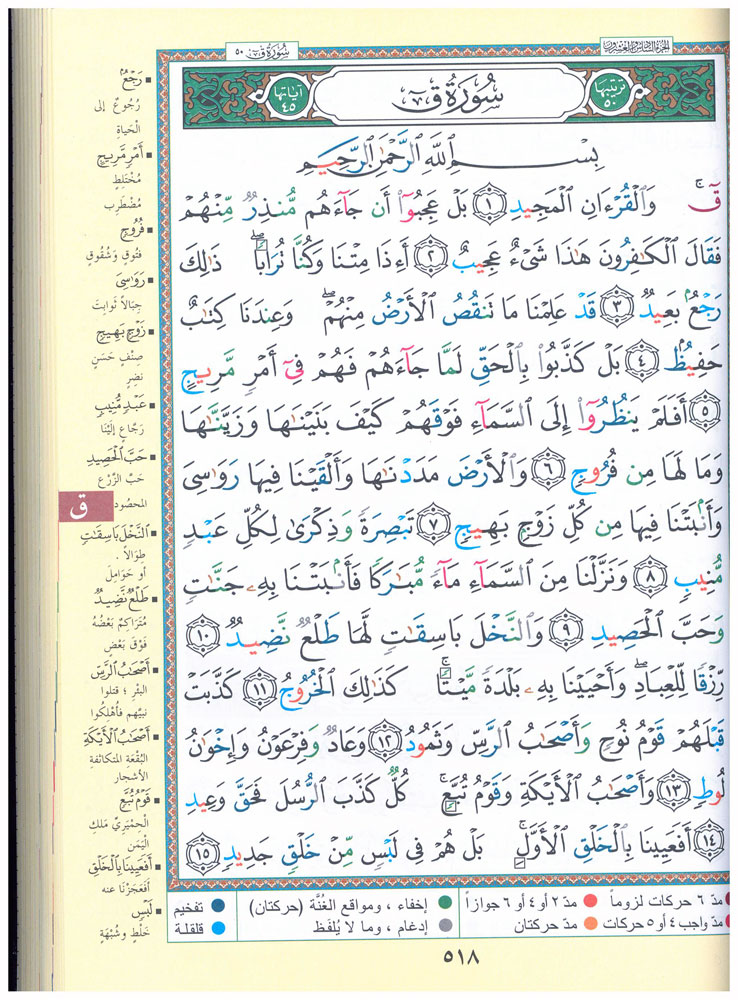 الجزء السادس والعشرون
سورة ق ٥٠
ترتيبها ٥٠
سُورَةُ ق
آياتها ٤٥
بِسْمِ ٱللَّهِ ٱلرَّحْمَٰنِ ٱلرَّحِيمِ
قٓ ۚ وَٱلْقُرْءَانِ ٱلْمَجِيدِ ١ بَلْ عَجِبُوٓا۟ أَن جَآءَهُم مُّنذِرٌ مِّنْهُمْ
فَقَالَ ٱلْكَٰفِرُونَ هَٰذَا شَىْءٌ عَجِيبٌ ٢ أَءِذَا مِتْنَا وَكُنَّا تُرَابًا ۖ ذَٰلِكَ
رَجْعٌۢ بَعِيدٌ ٣ قَدْ عَلِمْنَا مَا تَنقُصُ ٱلْأَرْضُ مِنْهُمْ ۖ وَعِندَنَا كِتَٰبٌ
حَفِيظٌۢ ٤ بَلْ كَذَّبُوا۟ بِٱلْحَقِّ لَمَّا جَآءَهُمْ فَهُمْ فِىٓ أَمْرٍ مَّرِيجٍ
٥ أَفَلَمْ يَنظُرُوٓا۟ إِلَى ٱلسَّمَآءِ فَوْقَهُمْ كَيْفَ بَنَيْنَٰهَا وَزَيَّنَّٰهَا
وَمَا لَهَا مِن فُرُوجٍ ٦ وَٱلْأَرْضَ مَدَدْنَٰهَا وَأَلْقَيْنَا فِيهَا رَوَٰسِىَ
وَأَنۢبَتْنَا فِيهَا مِن كُلِّ زَوْجٍۭ بَهِيجٍ ٧ تَبْصِرَةً وَذِكْرَىٰ لِكُلِّ عَبْدٍ
مُّنِيبٍ ٨ وَنَزَّلْنَا مِنَ ٱلسَّمَآءِ مَآءً مُّبَٰرَكًا فَأَنۢبَتْنَا بِهِۦ جَنَّٰتٍ
وَحَبَّ ٱلْحَصِيدِ ٩ وَٱلنَّخْلَ بَاسِقَٰتٍ لَّهَا طَلْعٌ نَّضِيدٌ ١٠
رِّزْقًا لِّلْعِبَادِ ۖ وَأَحْيَيْنَا بِهِۦ بَلْدَةً مَّيْتًا ۚ كَذَٰلِكَ ٱلْخُرُوجُ ١١ كَذَّبَتْ
قَبْلَهُمْ قَوْمُ نُوحٍ وَأَصْحَٰبُ ٱلرَّسِّ وَثَمُودُ ١٢ وَعَادٌ وَفِرْعَوْنُ وَإِخْوَٰنُ
لُوطٍ ١٣ وَأَصْحَٰبُ ٱلْأَيْكَةِ وَقَوْمُ تُبَّعٍ ۚ كُلٌّ كَذَّبَ ٱلرُّسُلَ فَحَقَّ وَعِيدِ
١٤ أَفَعَيِينَا بِٱلْخَلْقِ ٱلْأَوَّلِ ۚ بَلْ هُمْ فِى لَبْسٍ مِّنْ خَلْقٍ جَدِيدٍ ١٥
رَجْعٌ
رُجُوعٌ إلى
الحَياةِ
أَمْرٍ مَّرِيجٍ
مُخْتَلِطٍ
مُضْطَرِبٍ
فُرُوجٍ
فُتُوقٍ وَشُقُوقٍ
رَوَٰسِىَ
جِبَالاً ثَوابِتَ
زَوْجٍ بَهِيجٍ
صِنْفٍ حَسَنٍ
نَضِرٍ
عَبْدٍ مُّنِيبٍ
رَجَّاعٍ إلَيْنَا
حَبَّ ٱلْحَصِيدِ
حَبَّ الزَّرْعِ
المَحصُودِ
ق
ٱلنَّخْلَ بَاسِقَٰتٍ
طِوَالاً
أو حَوَامِلَ
طَلْعٌ نَّضِيدٌ
مُتَراكِمٌ بَعْضُهُ
فَوْقَ بَعْضٍ
أَصْحَٰبُ ٱلرَّسِّ
البئرِ ؛ قتلوا
نبيّهم فأُهلِكُوا
أَصْحَٰبُ ٱلْأَيْكَةِ
البُقْعَةِ المتكاثفةِ
الأشجارِ
قَوْمُ تُبَّعٍ
الحِمْيَرِيِّ مَلِكِ
اليَمَنِ
أَفَعَيِينَا بِٱلْخَلْقِ
أفَعَجَزْنَا عنه
لَبْسٍ
خَلْطٍ وشُبْهَةٍ
مدّ ٦ حركات لزوماً مدّ ٢ أو ٤ أو ٦ جوازاً إخفاء ، ومواقع الغُنَّة (حركتان) تفخيم
مدّ واجب ٤ أو ٥ حركات مدّ حركتان إدغام ، وما لا يُلفَظ قلقلة
٥١٨